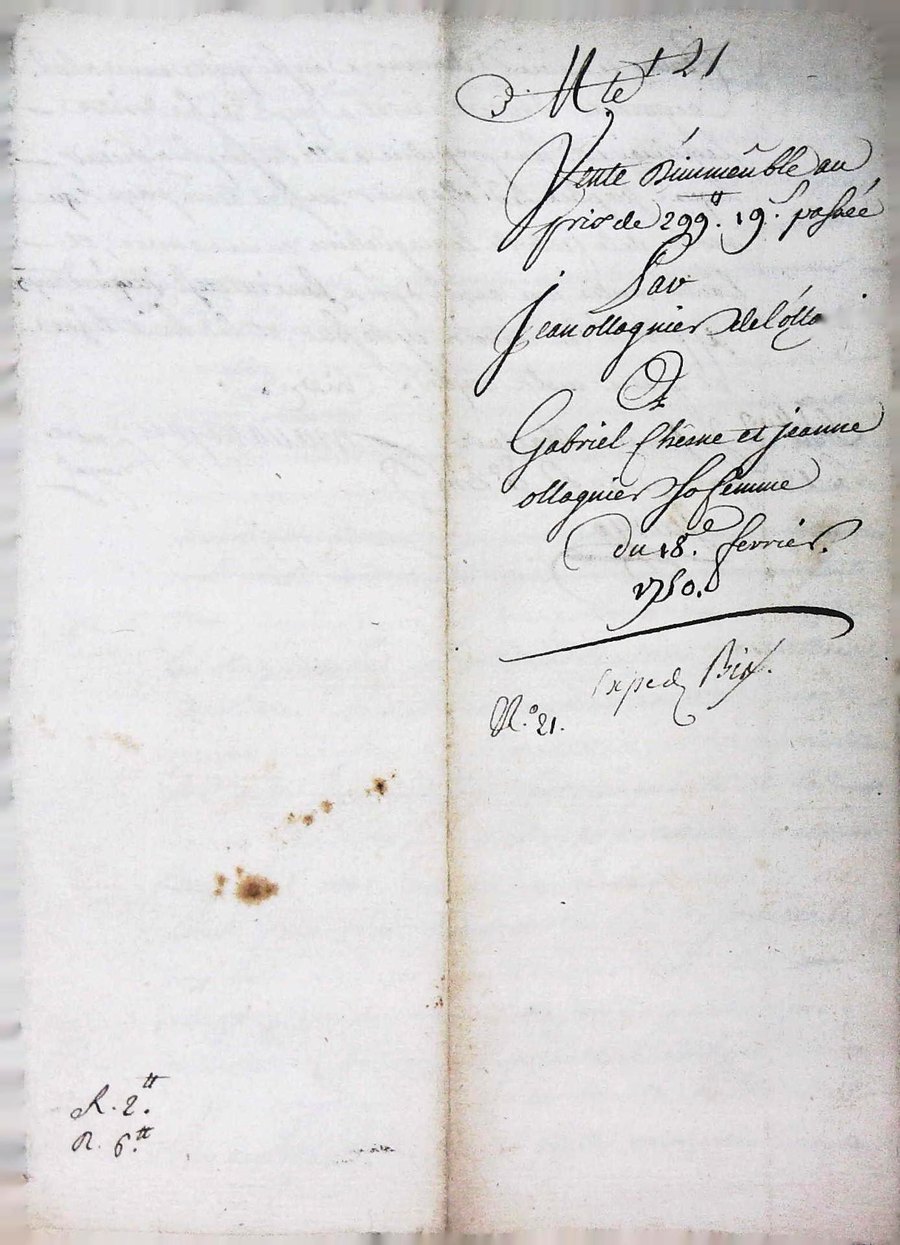 3. Mte 121
Vente d'immeuble au
prix de 299₶. 19s. passée
Par
Jean ollagnier de
A
Gabriel Chesne et jeanne
ollagnier sa femme
du 18.e fevrier.
1750.
Exped
N.o 21.
R. 2.₶
R. 6.₶